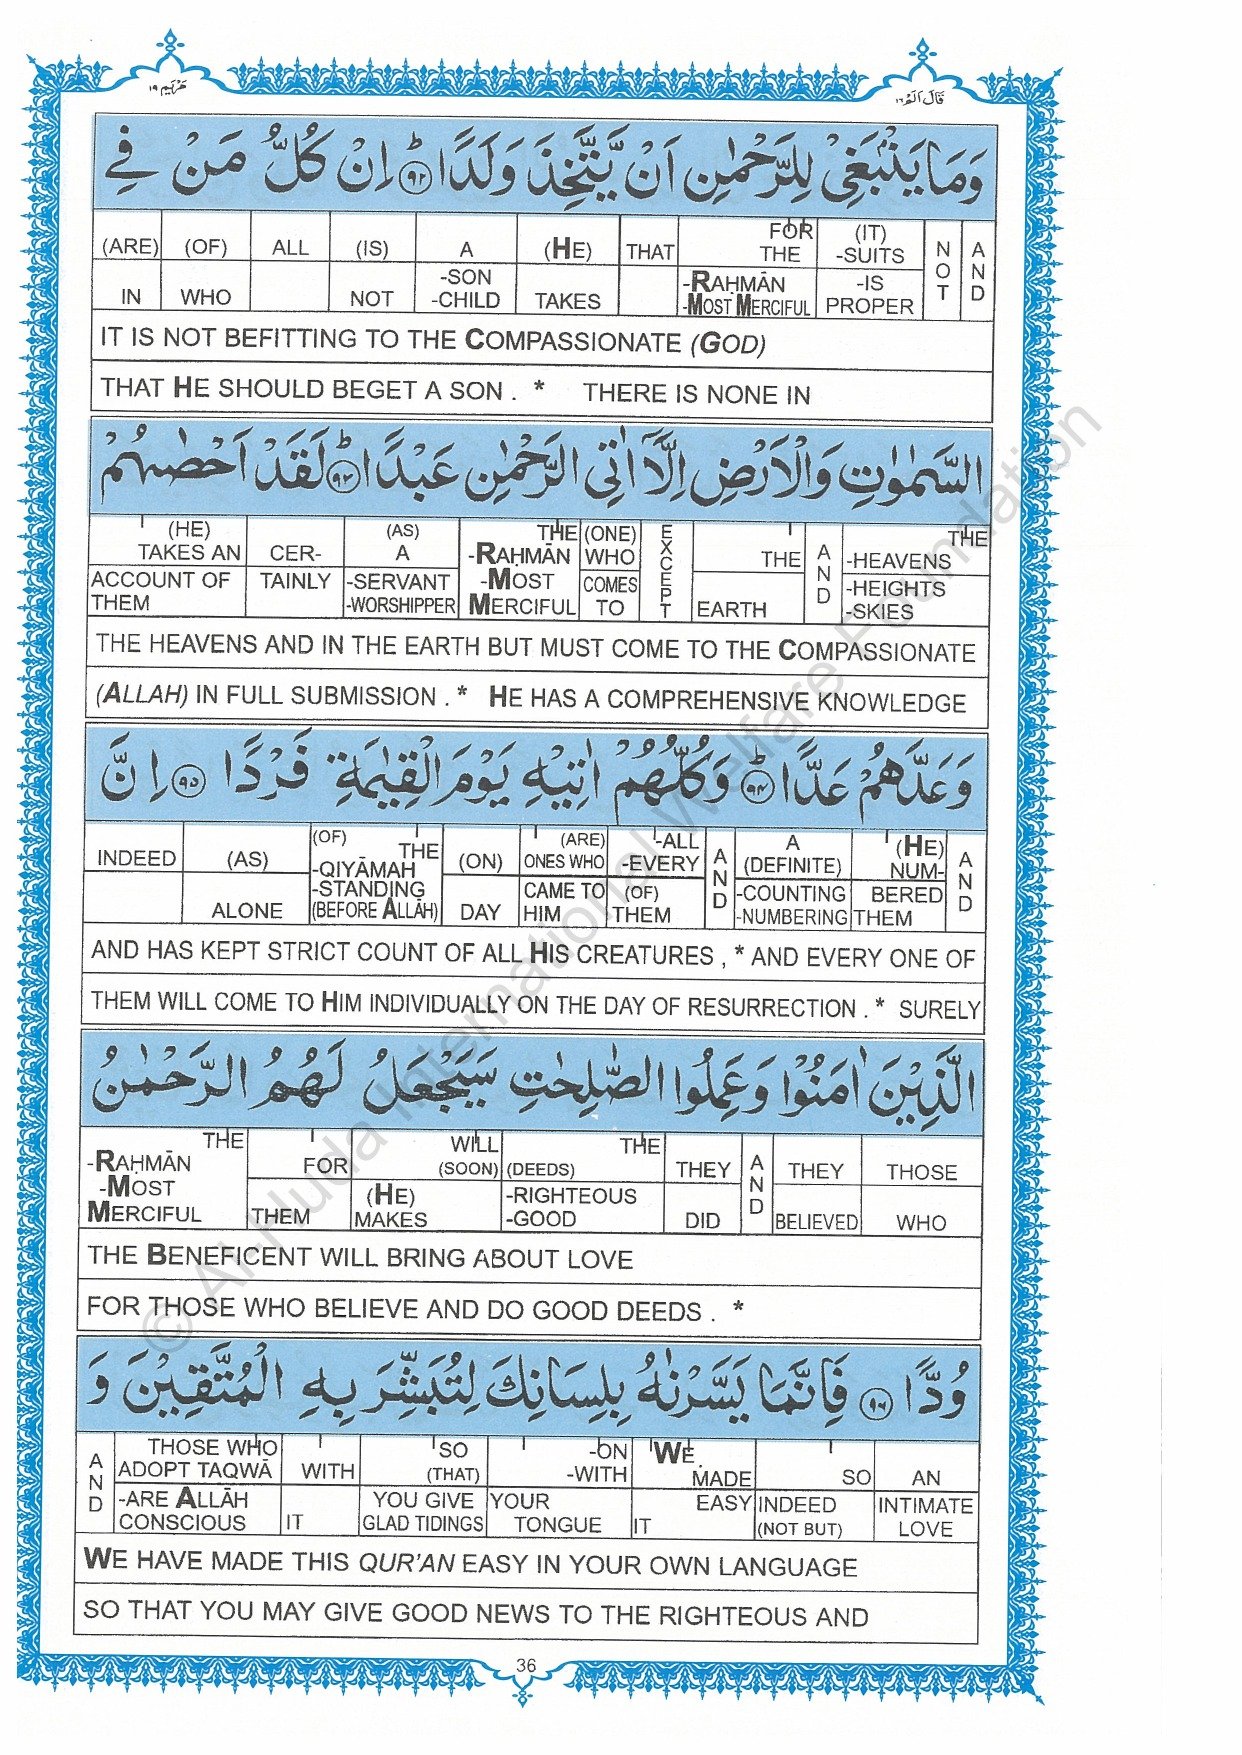 مَرْيَم ١٩
قَالَ اَلَمْ ١٦
وَمَا يَنْۢبَغِيْ لِلرَّحْمٰنِ اَنْ يَّتَّخِذَ وَلَدًا ؕ ٩٢ اِنْ كُلُّ مَنْ فِي
(ARE) (OF) ALL (IS) A (HE) THAT FOR THE (IT) -SUITS NOT AND
IN WHO NOT -SON -CHILD TAKES -RAḤMĀN -MOST MERCIFUL -IS PROPER
IT IS NOT BEFITTING TO THE COMPASSIONATE (GOD)
THAT HE SHOULD BEGET A SON . * THERE IS NONE IN
السَّمٰوٰتِ وَالْاَرْضِ اِلَّاۤ اٰتِي الرَّحْمٰنِ عَبْدًا ؕ ٩٣ لَقَدْ اَحْصٰىهُمْ
(HE) TAKES AN CER- (AS) A THE -RAḤMĀN (ONE) WHO EXCEPT THE AND THE -HEAVENS
ACCOUNT OF THEM TAINLY -SERVANT -WORSHIPPER -MOST MERCIFUL COMES TO EARTH -HEIGHTS -SKIES
THE HEAVENS AND IN THE EARTH BUT MUST COME TO THE COMPASSIONATE
(ALLAH) IN FULL SUBMISSION . * HE HAS A COMPREHENSIVE KNOWLEDGE
وَعَدَّهُمْ عَدًّا ؕ ٩٤ وَكُلُّهُمْ اٰتِيْهِ يَوْمَ الْقِيٰمَةِ فَرْدًا ٩٥ اِنَّ
INDEED (AS) (OF) THE -QIYĀMAH (ON) (ARE) ONES WHO -ALL -EVERY AND A (DEFINITE) (HE) NUM- AND
ALONE -STANDING (BEFORE ALLĀH) DAY CAME TO HIM (OF) THEM -COUNTING -NUMBERING BERED THEM
AND HAS KEPT STRICT COUNT OF ALL HIS CREATURES , * AND EVERY ONE OF
THEM WILL COME TO HIM INDIVIDUALLY ON THE DAY OF RESURRECTION . * SURELY
الَّذِيْنَ اٰمَنُوْا وَعَمِلُوا الصّٰلِحٰتِ سَيَجْعَلُ لَهُمُ الرَّحْمٰنُ
THE -RAḤMĀN FOR WILL (SOON) THE (DEEDS) THEY AND THEY THOSE
-MOST MERCIFUL THEM (HE) MAKES -RIGHTEOUS -GOOD DID BELIEVED WHO
THE BENEFICENT WILL BRING ABOUT LOVE
FOR THOSE WHO BELIEVE AND DO GOOD DEEDS . *
وُدًّا ٩٦ فَاِنَّمَا يَسَّرْنٰهُ بِلِسَانِكَ لِتُبَشِّرَ بِهِ الْمُتَّقِيْنَ وَ
AND THOSE WHO ADOPT TAQWĀ WITH SO (THAT) -ON -WITH WE MADE SO AN
-ARE ALLĀH CONSCIOUS IT YOU GIVE GLAD TIDINGS YOUR TONGUE EASY IT INDEED (NOT BUT) INTIMATE LOVE
WE HAVE MADE THIS QUR'AN EASY IN YOUR OWN LANGUAGE
SO THAT YOU MAY GIVE GOOD NEWS TO THE RIGHTEOUS AND
36
© Al-Huda International Welfare Foundation